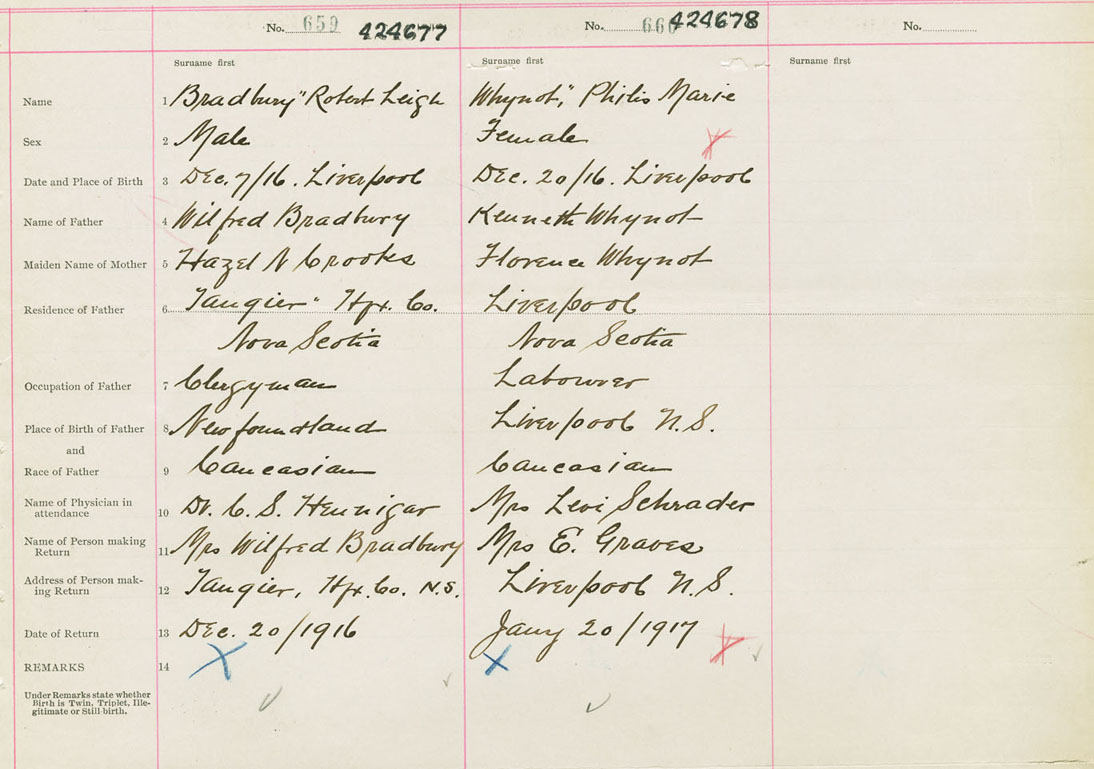 No. 659 424677 No. 660 424678 No.
Surname first Surname first Surname first
Name 1 Bradbury" Robert Leigh Whynot", Philis Marie
Sex 2 Male Female
Date and Place of Birth 3 Dec. 7/16. Liverpool Dec. 20/16. Liverpool
Name of Father 4 Wilfred Bradbury Kenneth Whynot
Maiden Name of Mother 5 Hazel N Crooks Florence Whynot
Residence of Father 6 Tangier" Hfx. Co. Liverpool
Nova Scotia Nova Scotia
Occupation of Father 7 Clergyman Labourer
Place of Birth of Father 8 Newfoundland Liverpool N.S.
and
Race of Father 9 Caucasian Caucasian
Name of Physician in
attendance 10 Dr. C. S. Hennigar Mrs Levi Schrader
Name of Person making
Return 11 Mrs Wilfred Bradbury Mrs E. Graves
Address of Person mak-
ing Return 12 Tangier, Hfx. Co. N.S. Liverpool N.S.
Date of Return 13 Dec. 20/1916 Jany 20/1917
REMARKS 14
Under Remarks state whether
Birth is Twin, Triplet, Ille-
gitimate or Still-birth.